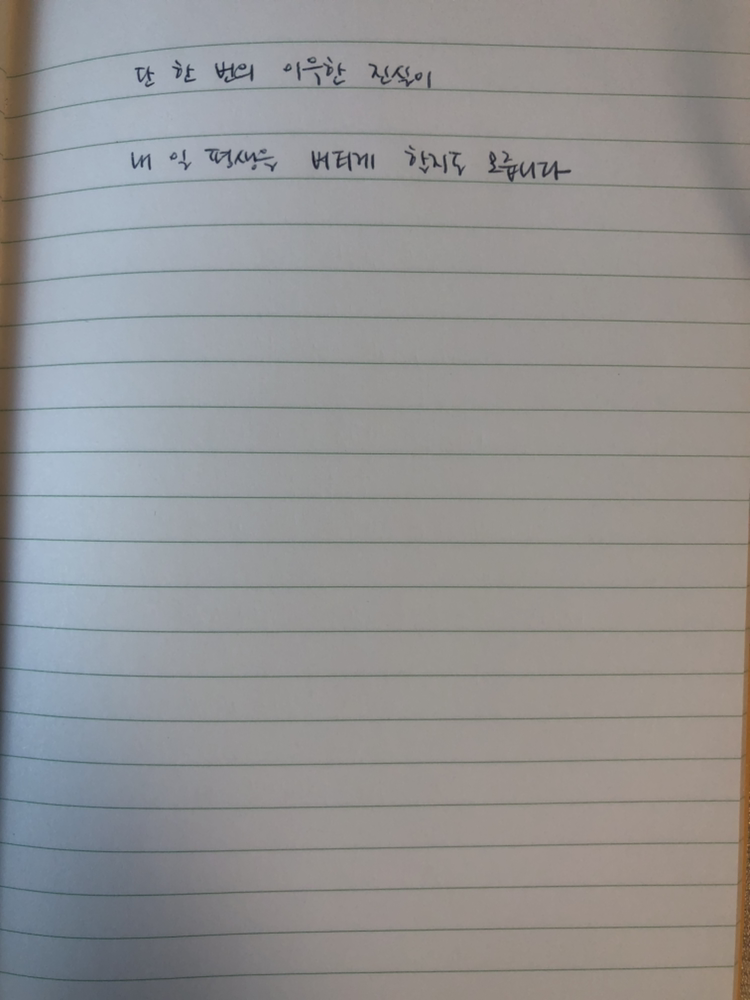 단 한 번의 이윽한 진실이
내 일 평생을 버티게 할지도 모릅니다